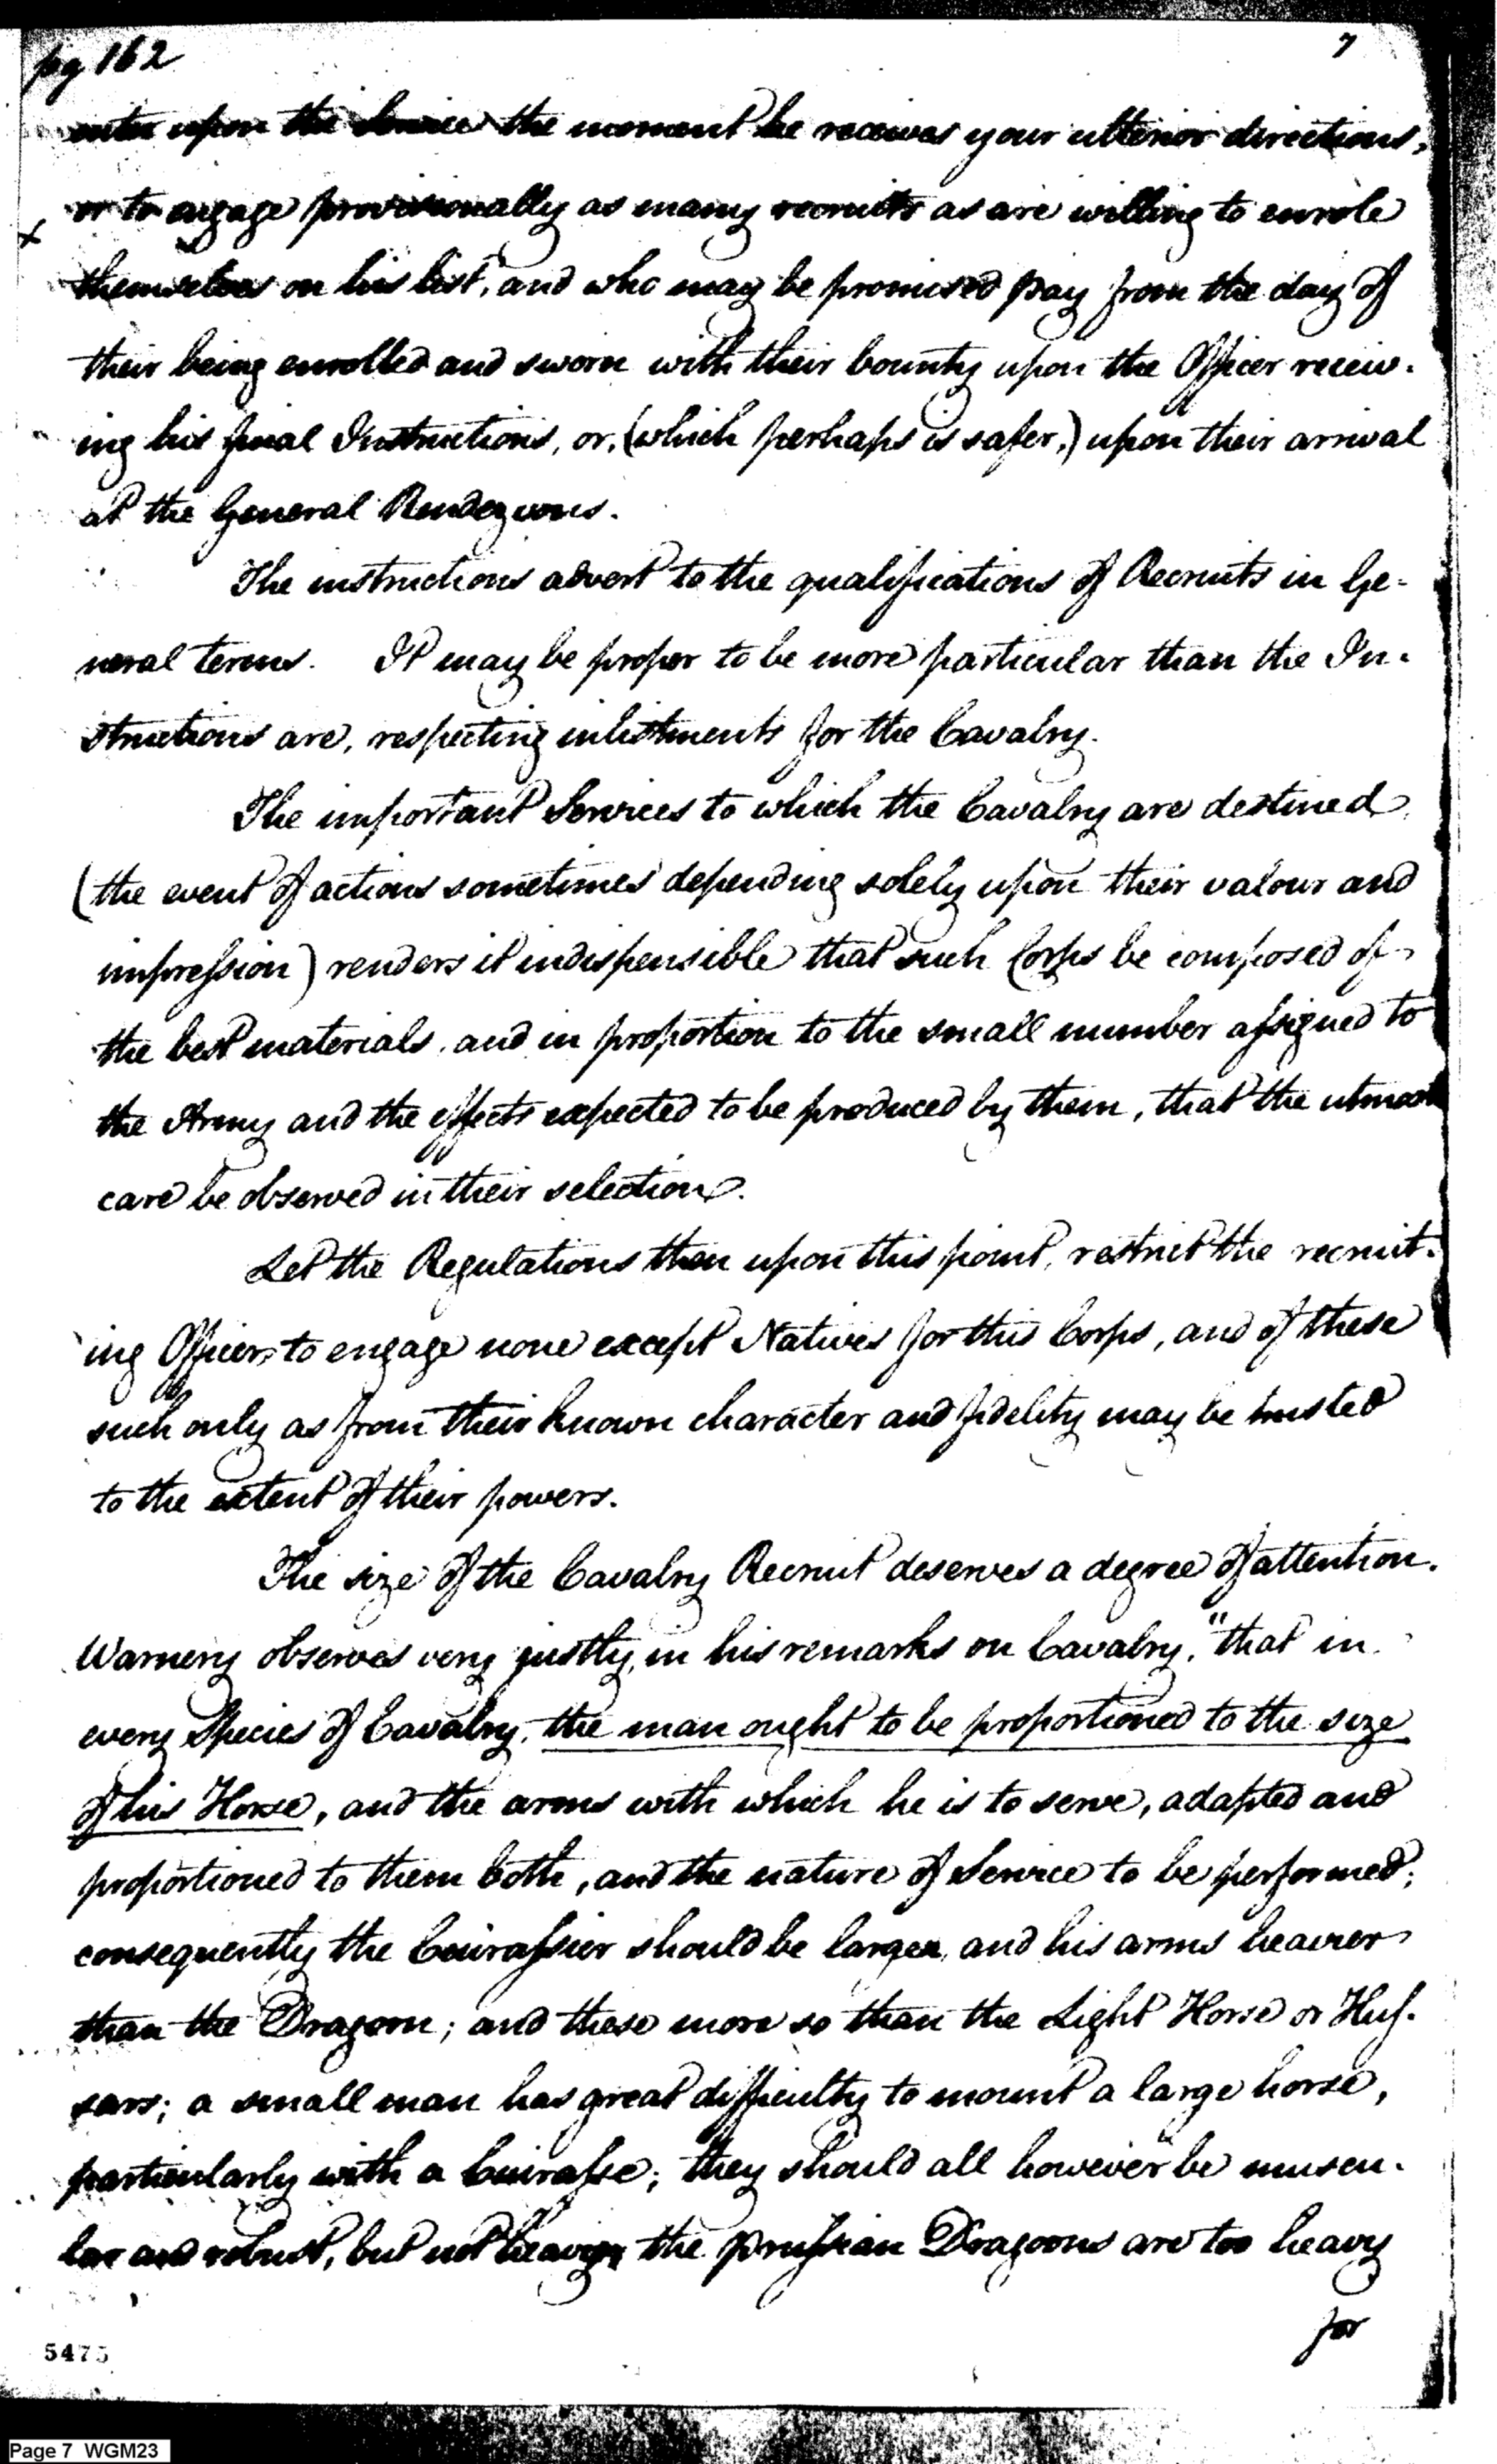 pg 162
7
enter upon the Service the moment he receives your ulterior directions,
or to engage provisionally as many recruits as are willing to enrole
x
themselves on his list, and who may be promised pay from the day of
their being enrolled and sworn with their bounty upon the Officer receiv-
ing his final Instructions, or, (which perhaps is safer,) upon their arrival
at the General Rendezvous.
The instructions advert to the qualifications of Recruits in Ge-
neral terms. It may be proper to be more particular than the In-
structions are, respecting inlistments for the Cavalry.
The important Services to which the Cavalry are destined
(the event of actions sometimes depending solely upon their valour and
impression) renders it indispensible that such Corps be composed of
the best materials, and in proportion to the small number assigned to
the Army and the effects expected to be produced by them, that the utmost
care be observed in their selection.
Let the Regulations then upon this point, restrict the recruit-
ing Officers to engage none except Natives for this Corps, and of these
such only as from their known character and fidelity may be trusted
to the extent of their powers.
The size of the Cavalry Recruit deserves a degree of attention.
Warnery observes very justly, in his remarks on Cavalry, "that in
every Species of Cavalry, the man ought to be proportioned to the size
of his Horse, and the arms with which he is to serve, adapted and
proportioned to them both, and the nature of Service to be performed;
consequently the Cuirassier should be larger, and his arms heavier
than the Dragoon; and these more so than the Light Horse or Hus-
sars; a small man has great difficulty to mount a large horse,
particularly with a Cuirasse; they should all however be muscu-
lar and robust, but not heavy; the prussian Dragoons are too heavy
for
5475
Page 7 WGM23